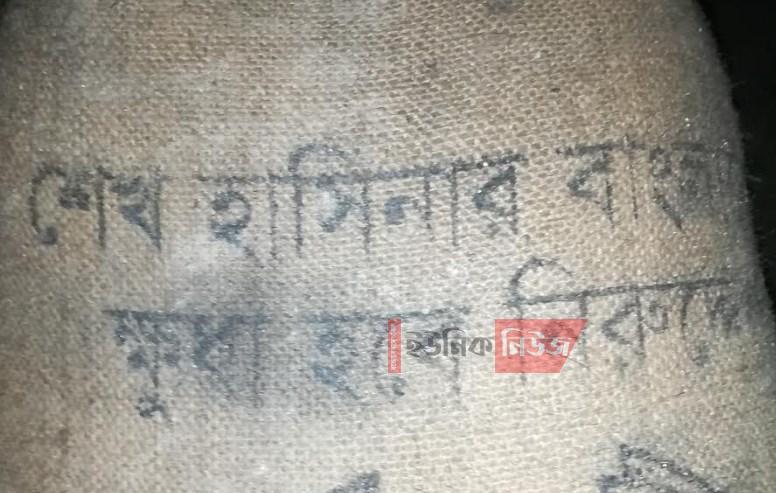 শেখ হাসিনার বাংলা
ক্ষুধা হবে নিরুদ্দেশ
ইউনিক নিউজ